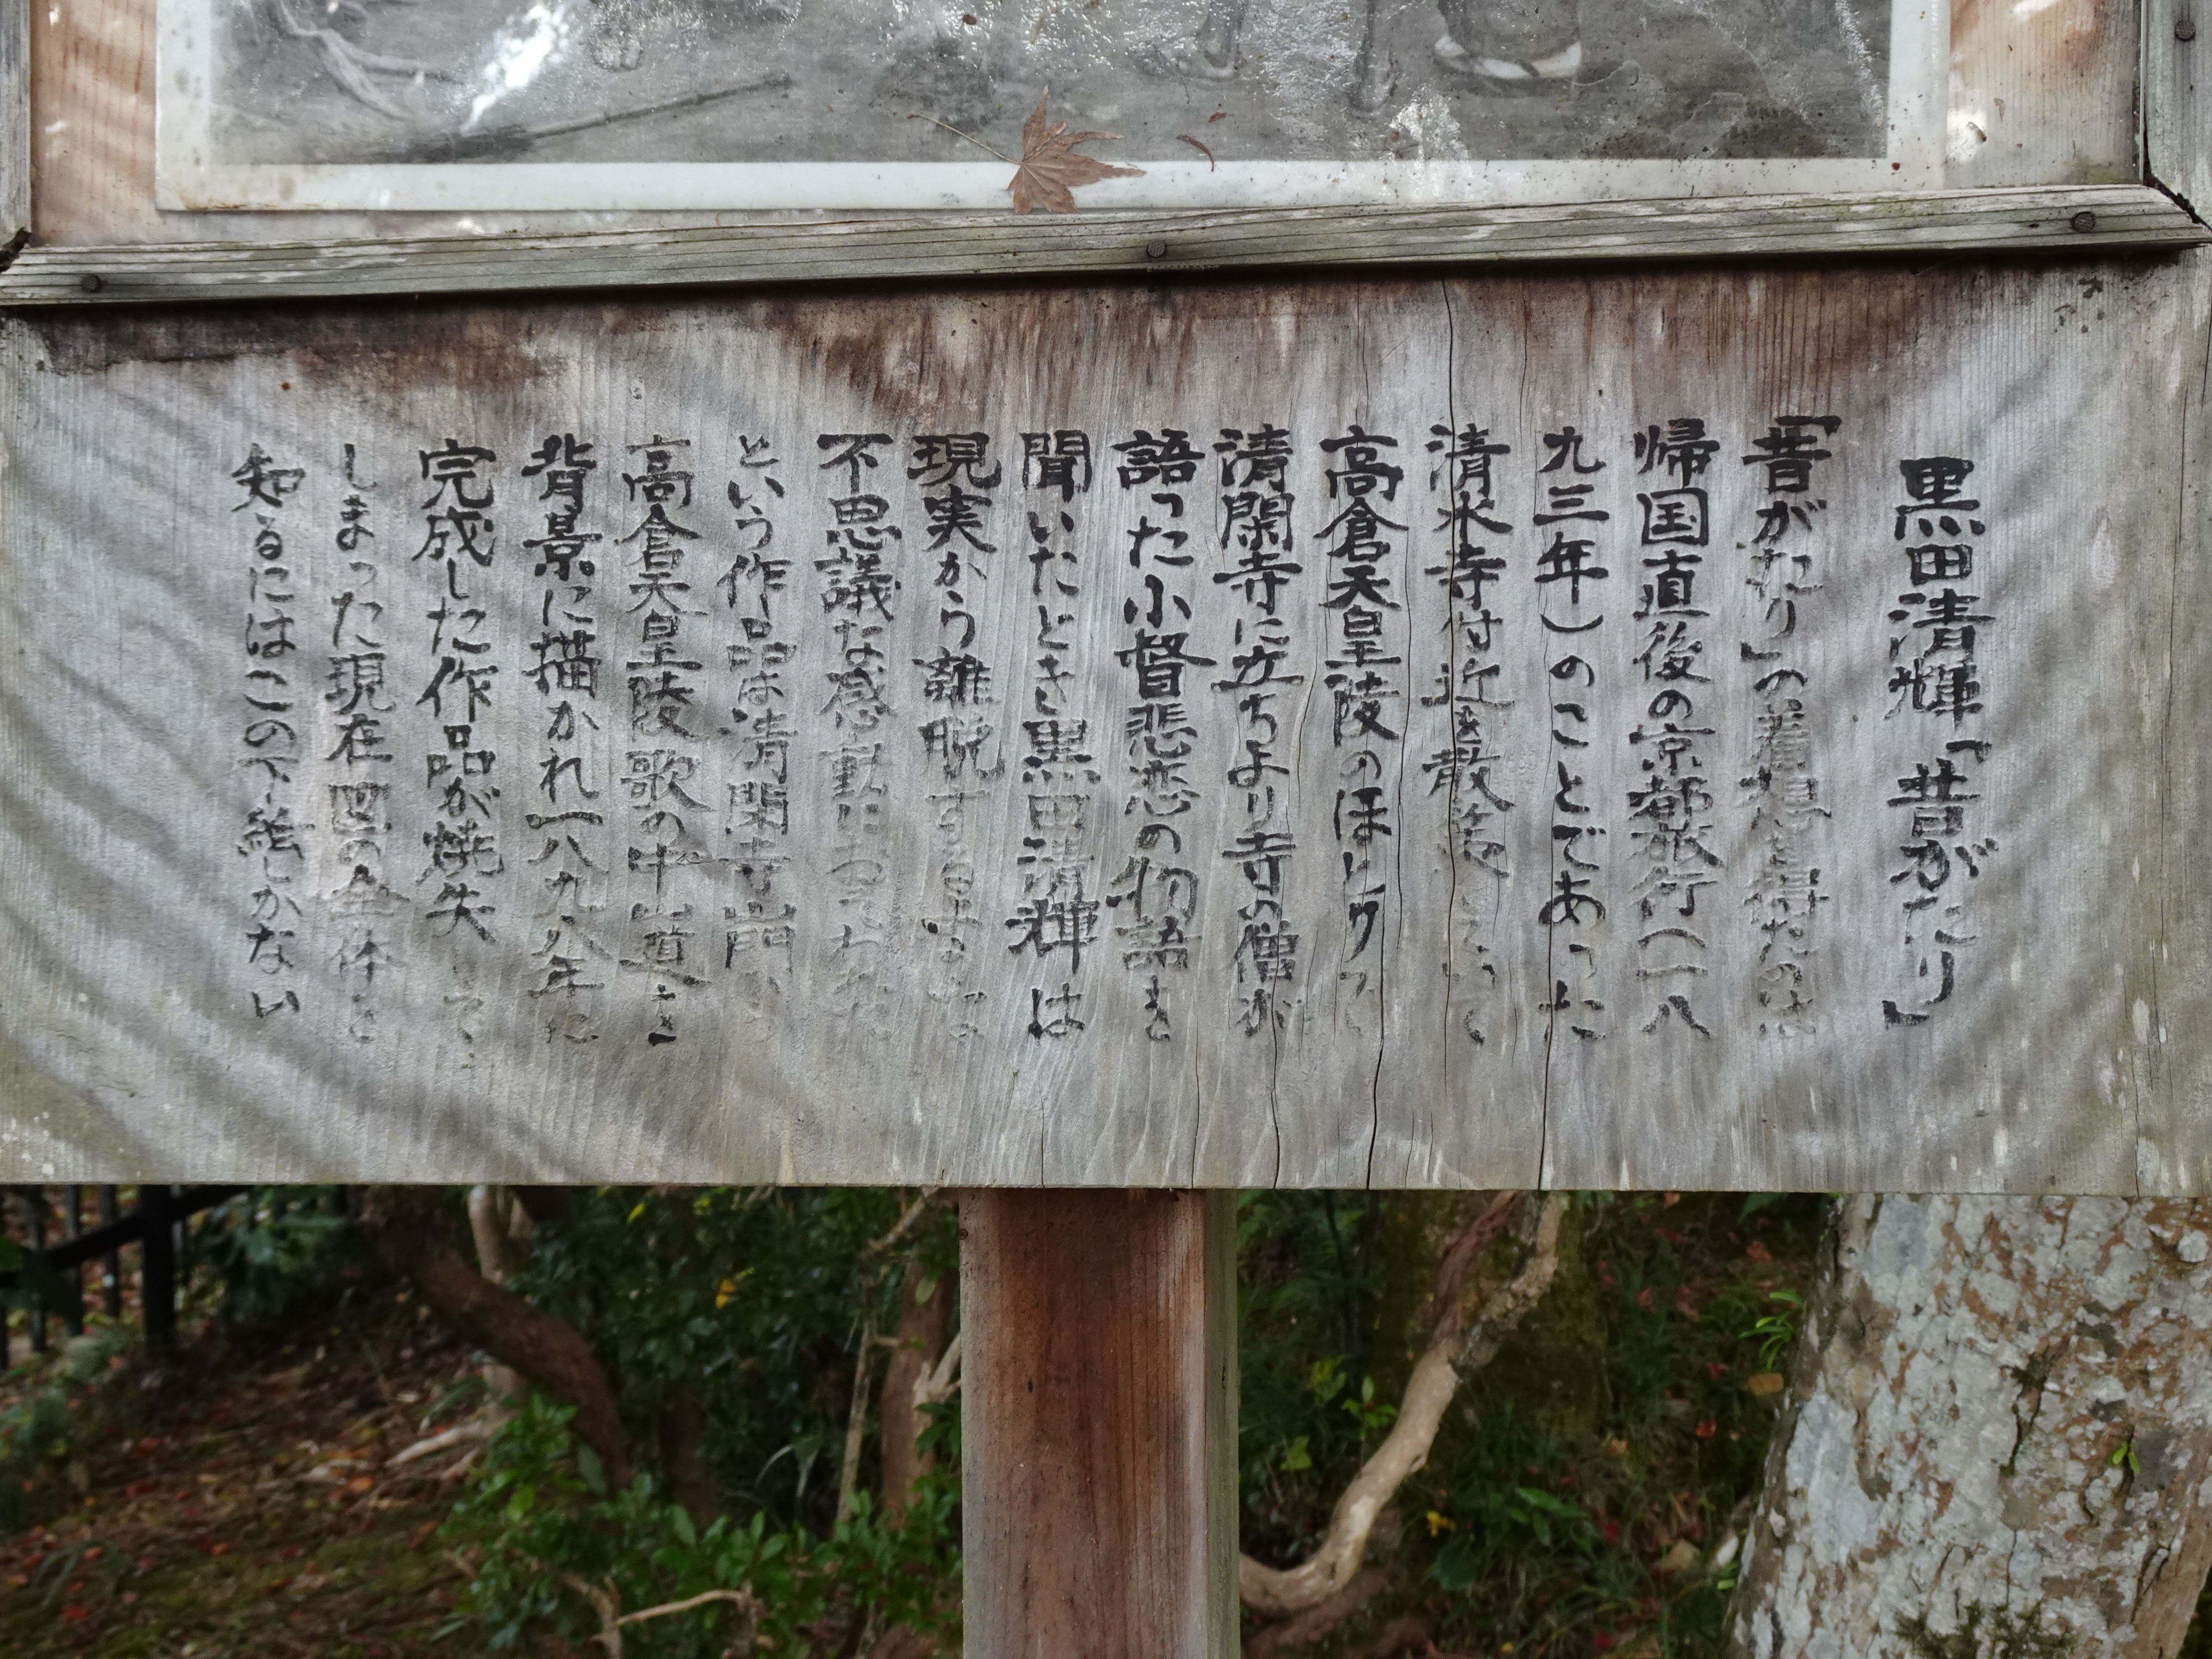 黒田清輝「昔がたり」
「昔がたり」の着想を得たのは
帰国直後の京都旅行(一八
九三年)のことであった
清水寺付近を散策していて
高倉天皇陵のほとりの
清閑寺に立ちより寺の僧が
語った小督悲恋の物語を
聞いたとき黒田清輝は
現実から離脱するような
不思議な感動におそわれた
という作品は清閑寺山門
高倉天皇陵歌の中山道を
背景に描かれ一八九八年に
完成した作品が焼失して
しまった現在図の全体を
知るにはこの下絵しかない